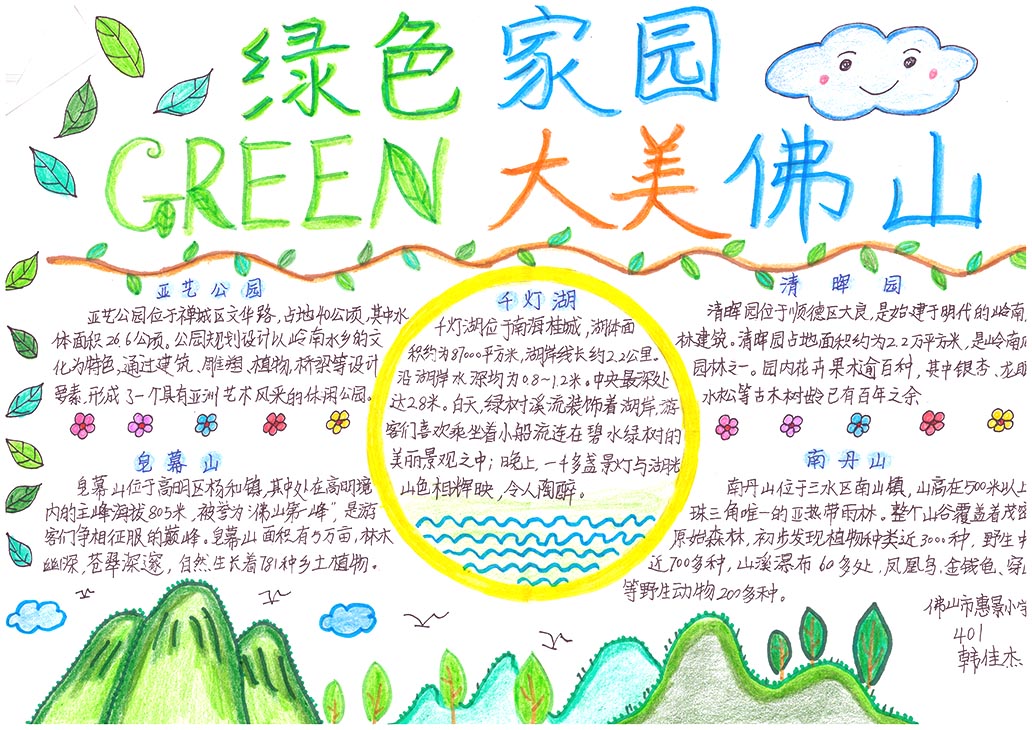 绿色家园
GREEN 大美佛山
亚艺公园
亚艺公园位于禅城区文华路,占地40公顷,其中水
体面积26.6公顷。公园规划设计以岭南水乡的文
化为特色,通过建筑、雕塑、植物、桥梁等设计
要素,形成了一个具有亚洲艺术风采的休闲公园。
千灯湖
千灯湖位于南海桂城,湖体面
积约为87000平方米,湖岸线长约2.2公里。
沿湖岸水深均为0.8~1.2米。中央最深处
达2.8米。白天,绿树溪流装饰着湖岸,游
客们喜欢乘坐着小船流连在碧水绿树的
美丽景观之中;晚上,一千多盏景灯与湖光
山色相辉映,令人陶醉。
清晖园
清晖园位于顺德区大良,是始建于明代的岭南
林建筑。清晖园占地面积约为2.2万平方米,是岭南
园林之一。园内花卉果木逾百种,其中银杏、龙
水松等古木树龄已有百年之余
皂幕山
皂幕山位于高明区杨和镇,其中处在高明境
内的主峰海拔805米,被誉为“佛山第一峰”,是游
客们争相征服的巅峰。皂幕山面积有5万亩,林木
幽深,苍翠深邃,自然生长着781种乡土植物。
南丹山
南丹山位于三水区南山镇,山高在500米以上
珠三角唯一的亚热带雨林。整个山谷覆盖着茂
原始森林,初步发现植物种类近3000种,野生
近700多种,山溪瀑布60多处,凤凰鸟、金钱龟、穿
等野生动物200多种。
佛山市惠景小学
401
韩佳杰